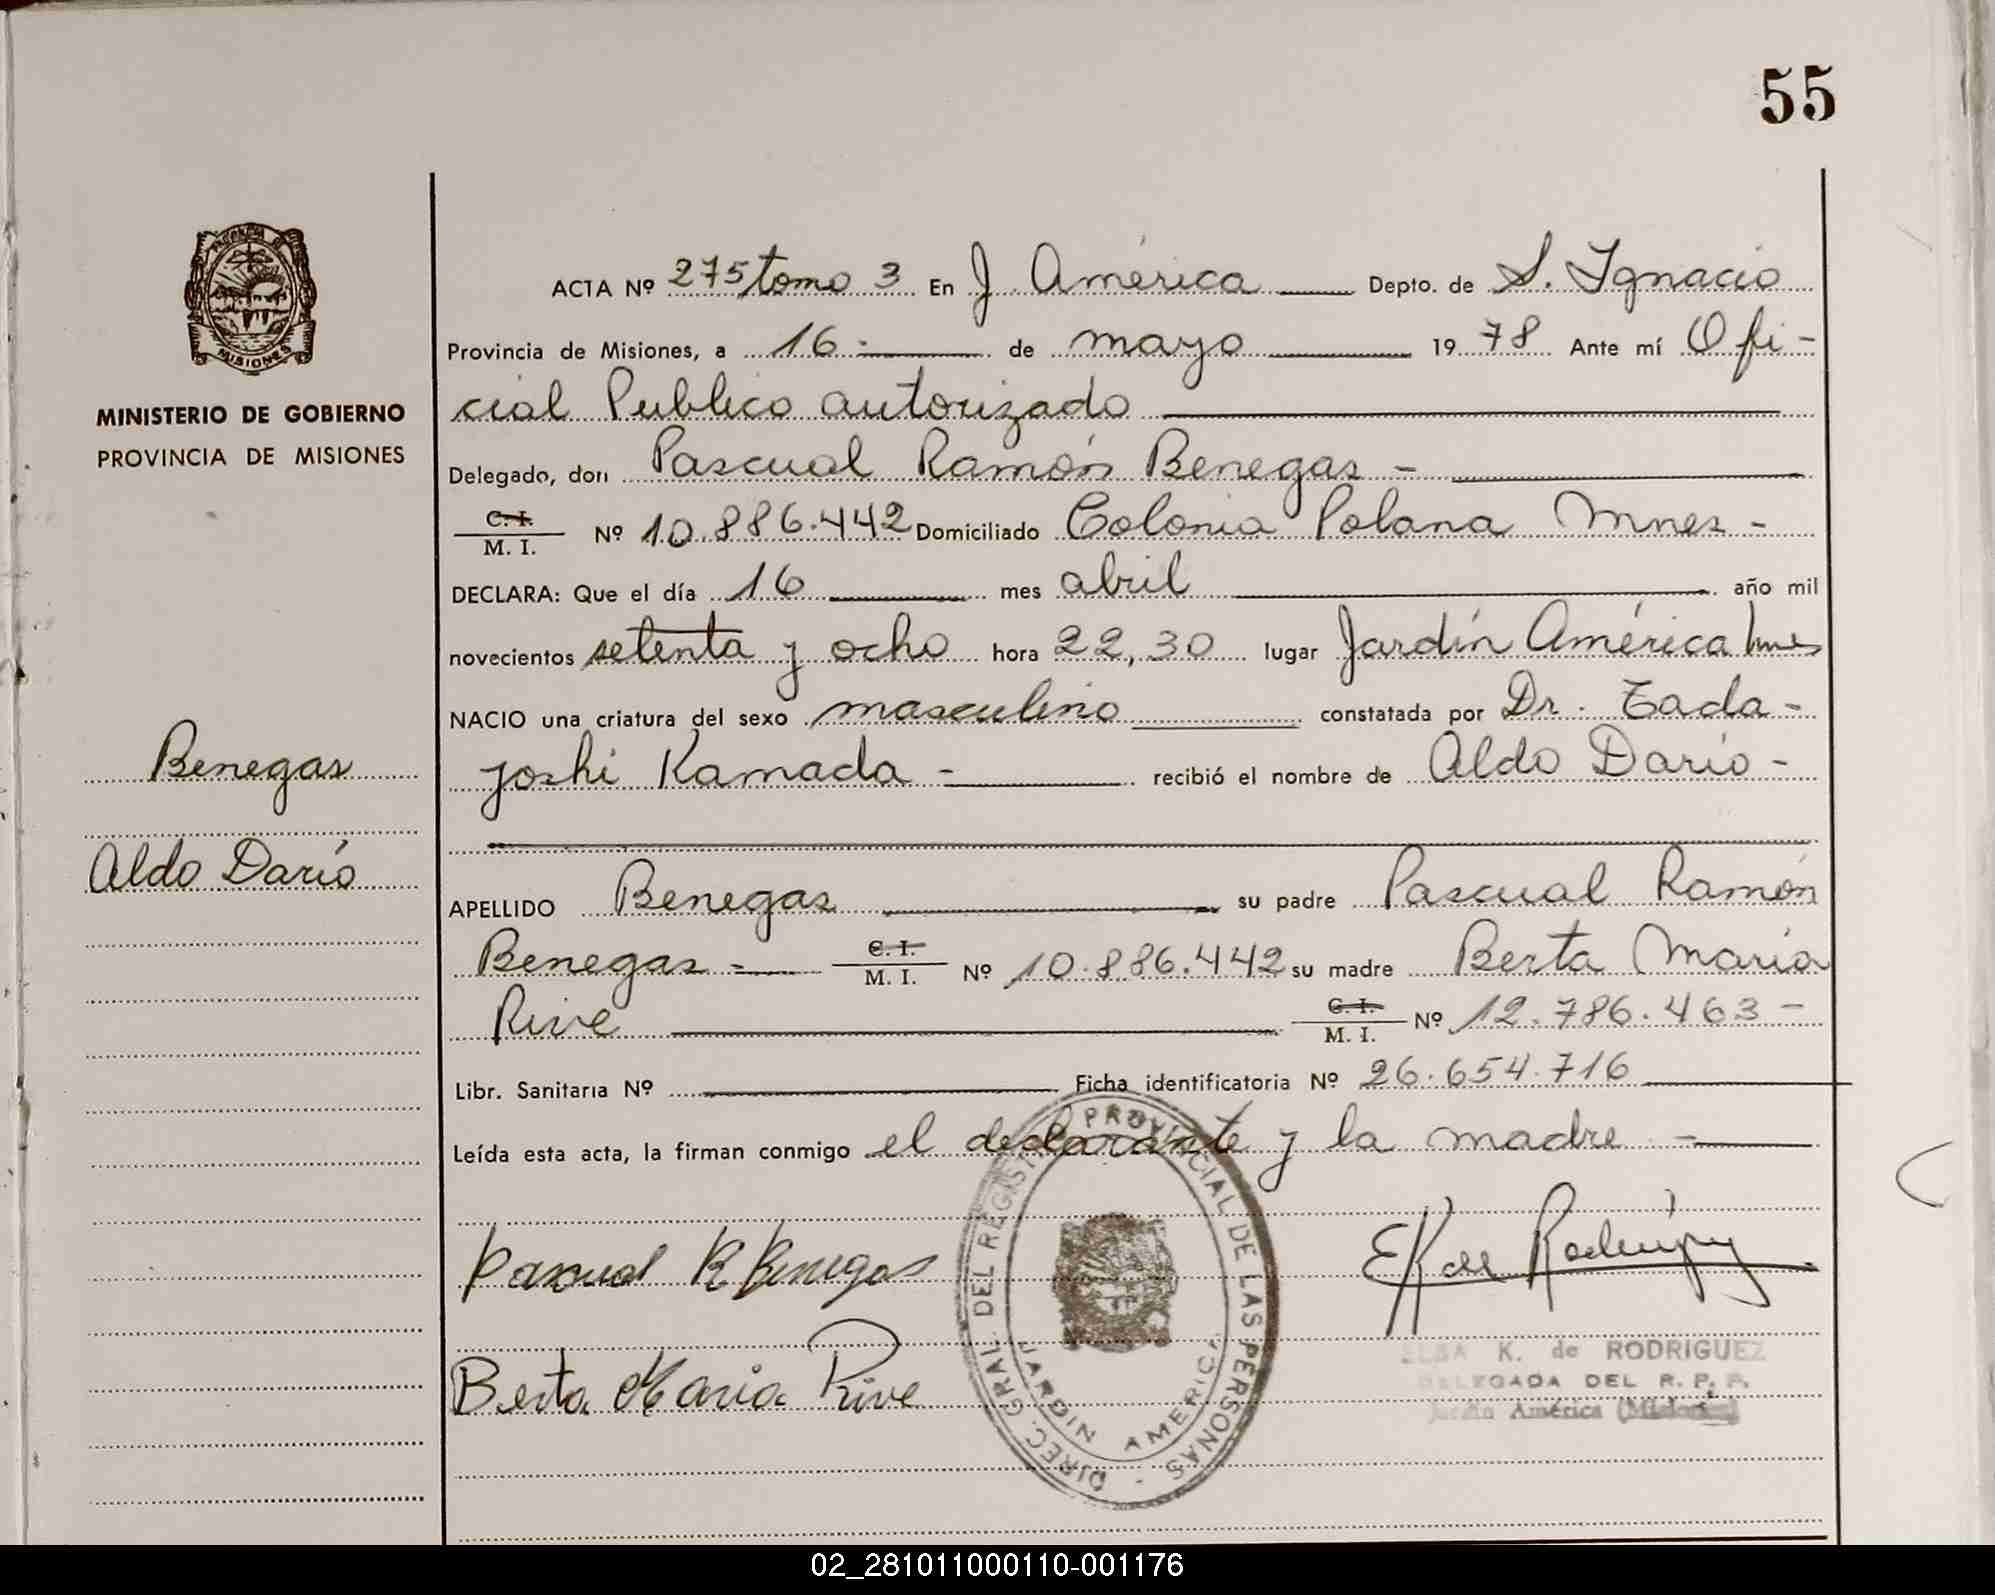 55
PROVINCIA DE
MISIONES
MINISTERIO DE GOBIERNO
PROVINCIA DE MISIONES
Benegas
Aldo Darío
ACTA Nº 275 tomo 3 En J. América Depto. de S. Ignacio
Provincia de Misiones, a 16 de mayo 1978 Ante mí Ofi-
cial Publico autorizado
Delegado, don Pascual Ramón Benegas -
C. I. / M. I. Nº 10.886.442 Domiciliado Colonia Polana Mnes -
DECLARA: Que el día 16 mes abril año mil
novecientos setenta y ocho hora 22,30 lugar Jardín América Mnes
NACIO una criatura del sexo masculino constatada por Dr. Tada-
yoshi Kamada - recibió el nombre de Aldo Darío -
APELLIDO Benegas su padre Pascual Ramón
Benegas - C. I. / M. I. Nº 10.886.442 su madre Berta María
Rive C. I. / M. I. Nº 12.786.463 -
Libr. Sanitaria Nº Ficha identificatoria Nº 26.654.716
Leída esta acta, la firman conmigo el declarante y la madre -
Pascual R Benegas
EK de Rodriguez
Berta Maria Rive
DIREC. GRAL. DEL REGISTRO PROVINCIAL DE LAS PERSONAS -
JARDIN AMERICA
ELSA K. de RODRIGUEZ
DELEGADA DEL R. P. P.
Jardín América (Misiones)
02_281011000110-001176